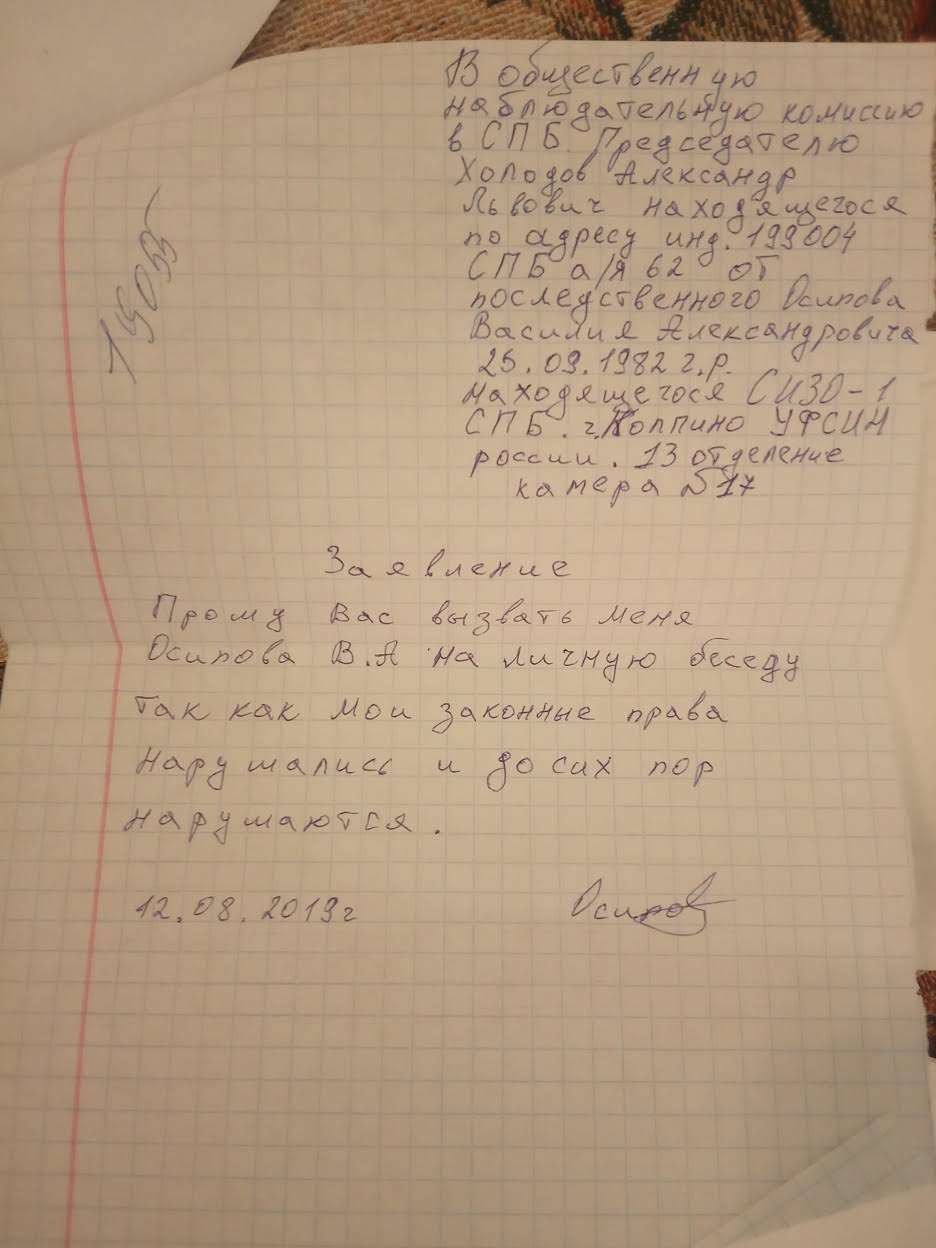 В общественную
наблюдательную комиссию
в СПБ. Председателю
Холодов Александр
Львович находящегося
по адресу инд. 199004
СПБ а/я 62 от
последственного Осипова
Василия Александровича
25.09.1982 г.р.
находящегося СИЗО-1
СПБ. г. Колпино УФСИН
россии. 13 отделение
камера №17
Заявление
Прошу Вас вызвать меня
Осипова В.А на личную беседу
так как мои законные права
нарушались и до сих пор
нарушаются.
12.08.2019г
Осипов